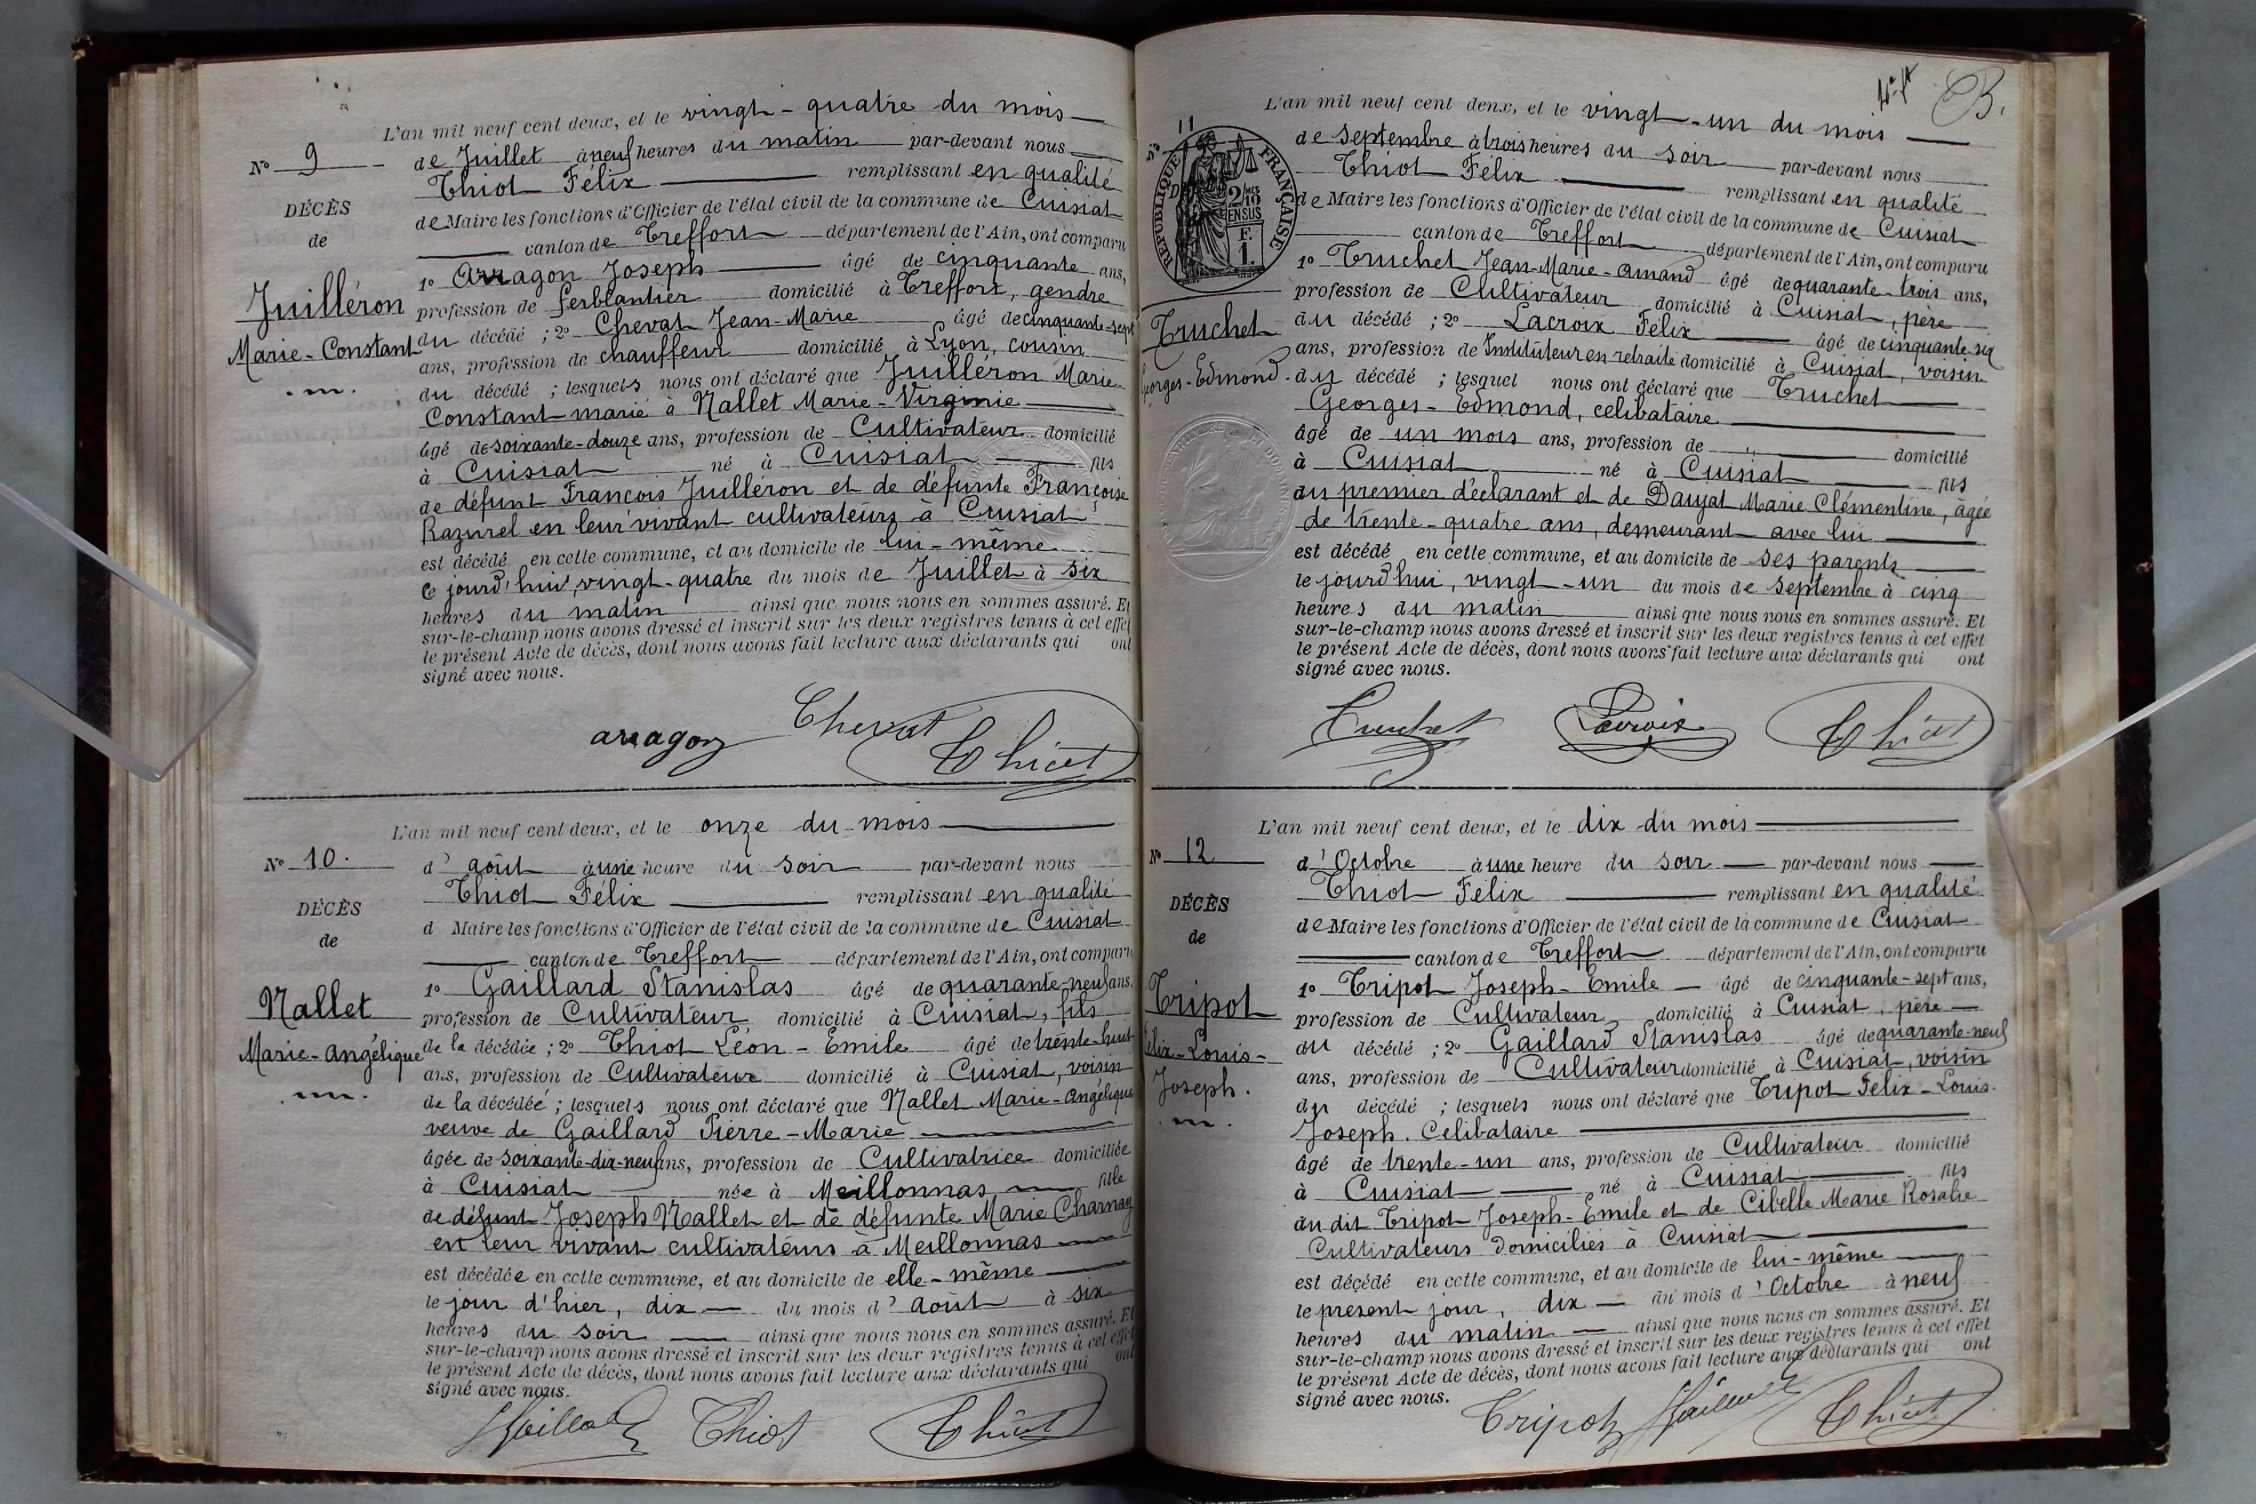 L'an mil neuf cent deux, et le vingt-quatre du mois
N° 9
de Juillet à neuf heures du matin par-devant nous
Thiot Félix remplissant en qualité
DÉCÈS
de Maire les fonctions d'Officier de l'état civil de la commune de Cuisiat
de
canton de Treffort département de l'Ain, ont comparu
1° Arragon Joseph âgé de cinquante ans,
Juilléron
profession de ferblantier domicilié à Treffort, gendre
du décédé ; 2° Cheval Jean-Marie âgé de cinquante-sept
Marie-Constant
ans, profession de chauffeur domicilié à Lyon, cousin
du décédé ; lesquels nous ont déclaré que Juilléron Marie
Constant marié à Nallet Marie-Virginie
âgé de soixante-douze ans, profession de Cultivateur domicilié
à Cuisiat né à Cuisiat fils
de défunt François Juilléron et de défunte Françoise
Razurel en leur vivant cultivateurs à Cuisiat
est décédé en cette commune, et au domicile de lui-même
ce jourd'hui, vingt-quatre du mois de Juillet à six
heures du matin ainsi que nous nous en sommes assuré. Et
sur-le-champ nous avons dressé et inscrit sur les deux registres tenus à cet effet
le présent Acte de décès, dont nous avons fait lecture aux déclarants qui ont
signé avec nous.
arragon Cheval Thiot
L'an mil neuf cent deux, et le onze du mois
N° 10.
d'août à une heure du soir par-devant nous
Thiot Félix remplissant en qualité
DÉCÈS
d Maire les fonctions d'Officier de l'état civil de la commune de Cuisiat
de
canton de Treffort département de l'Ain, ont comparu
1° Gaillard Stanislas âgé de quarante-neuf ans,
Nallet
profession de Cultivateur domicilié à Cuisiat, fils
Marie-Angélique
de la décédée ; 2° Thiot Léon-Emile âgé de trente-huit
ans, profession de Cultivateur domicilié à Cuisiat, voisin
de la décédée ; lesquels nous ont déclaré que Nallet Marie-Angélique
veuve de Gaillard Pierre-Marie
âgée de soixante-dix-neuf ans, profession de Cultivatrice domiciliée
à Cuisiat née à Meillonnas fille
de défunt Joseph Nallet et de défunte Marie Charnay
en leur vivant cultivateurs à Meillonnas
est décédée en cette commune, et au domicile de elle-même
le jour d'hier, dix du mois d'août à six
heures du soir ainsi que nous nous en sommes assuré. Et
sur-le-champ nous avons dressé et inscrit sur les deux registres tenus à cet effet
le présent Acte de décès, dont nous avons fait lecture aux déclarants qui ont
signé avec nous.
SGaillard Thiot Thiot
B.
L'an mil neuf cent deux, et le vingt-un du mois
N° 11
de septembre à trois heures du soir par-devant nous
Thiot Félix remplissant en qualité
RÉPUBLIQUE FRANÇAISE
2/10MES
EN SUS
F.
1.
de Maire les fonctions d'Officier de l'état civil de la commune de Cuisiat
canton de Treffort département de l'Ain, ont comparu
1° Truchet Jean-Marie-Amand âgé de quarante-trois ans,
profession de Cultivateur domicilié à Cuisiat, père
Truchet
du décédé ; 2° Lacroix Félix âgé de cinquante-six
ans, profession de Instituteur en retraite domicilié à Cuisiat, voisin
Georges-Edmond.
du décédé ; lesquel nous ont déclaré que Truchet
Georges-Edmond, célibataire
âgé de un mois ans, profession de " domicilié
à Cuisiat né à Cuisiat fils
du premier déclarant et de Daujat Marie Clémentine, âgée
de trente-quatre ans, demeurant avec lui
est décédé en cette commune, et au domicile de ses parents
le jourd'hui, vingt-un du mois de septembre à cinq
heures du matin ainsi que nous nous en sommes assuré. Et
sur-le-champ nous avons dressé et inscrit sur les deux registres tenus à cet effet
le présent Acte de décès, dont nous avons fait lecture aux déclarants qui ont
signé avec nous.
Truchet Lacroix Thiot
L'an mil neuf cent deux, et le dix du mois
N° 12
d'Octobre à une heure du soir par-devant nous
Thiot Félix remplissant en qualité
DÉCÈS
de Maire les fonctions d'Officier de l'état civil de la commune de Cuisiat
de
canton de Treffort département de l'Ain, ont comparu
1° Tripot Joseph-Emile âgé de cinquante-sept ans,
Tripot
profession de Cultivateur domicilié à Cuisiat, père
du décédé ; 2° Gaillard Stanislas âgé de quarante-neuf
Félix-Louis-
ans, profession de Cultivateur domicilié à Cuisiat, voisin
Joseph.
du décédé ; lesquels nous ont déclaré que Tripot Félix-Louis-
Joseph. Célibataire
âgé de trente-un ans, profession de Cultivateur domicilié
à Cuisiat né à Cuisiat fils
du dit Tripot Joseph-Emile et de Cibelle Marie Rosalie
Cultivateurs domiciliés à Cuisiat
est décédé en cette commune, et au domicile de lui-même
le présent jour, dix du mois d'Octobre à neuf
heures du matin ainsi que nous nous en sommes assuré. Et
sur-le-champ nous avons dressé et inscrit sur les deux registres tenus à cet effet
le présent Acte de décès, dont nous avons fait lecture aux déclarants qui ont
signé avec nous.
Tripot SGaillard Thiot